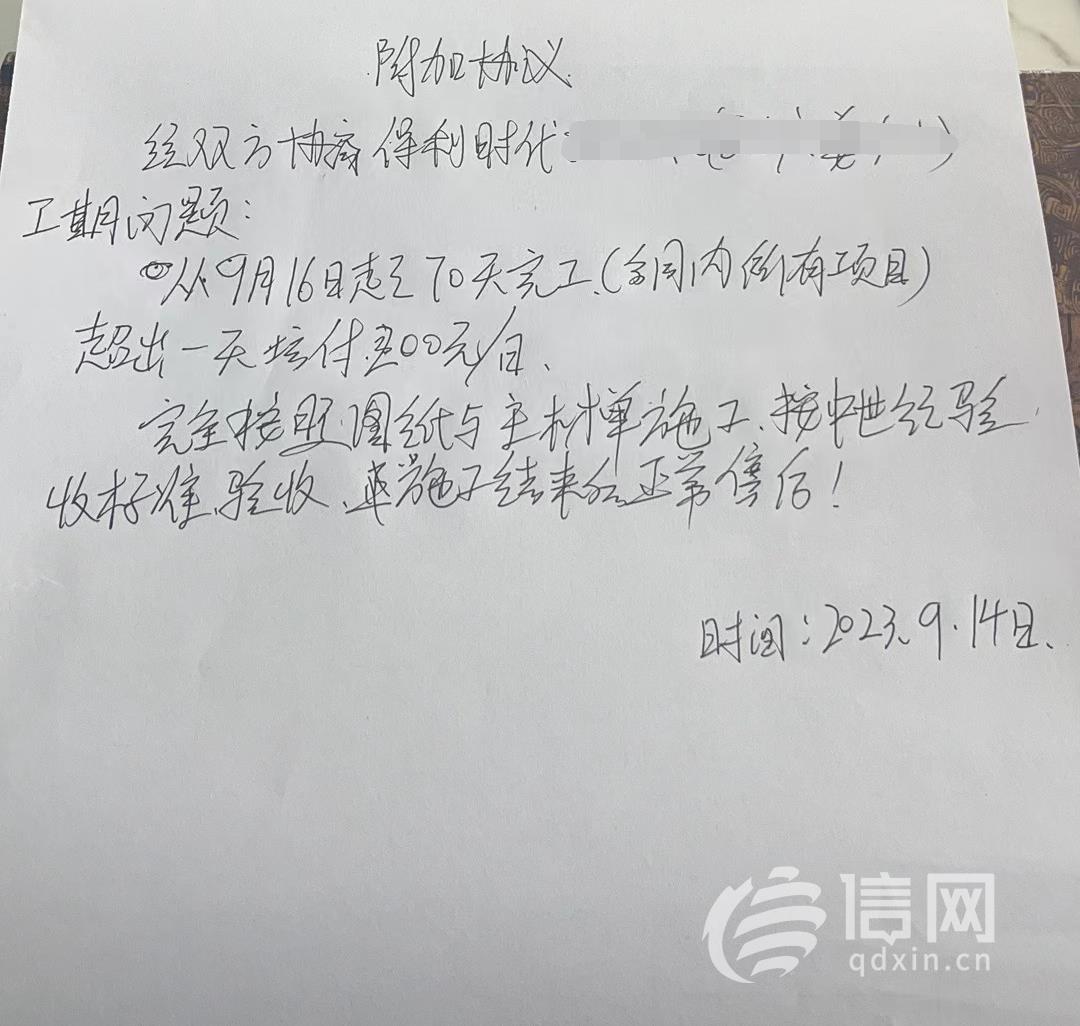 附加协议
经双方协商保利时代
工期问题:
从9月16日起70天完工.(合同内所有项目)
超出一天培付 00元/日、
完全按照图纸与主材单施工、按中世纪验
收标准验收、 施工结束后正常售后!
时间:2023、9.14日、
信网
qdxin.cn